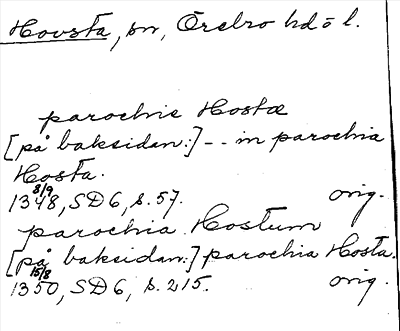 Hovsta, sn, Örebro hd ō l.
parochie Hostæ
[på baksidan:] -- in parochia
Hosta.
1348 8/9, SD 6, s. 57. orig.
parochia Hostum
[på baksidan:] parochia Hosta.
1350 15/8, SD 6, s. 215. orig.